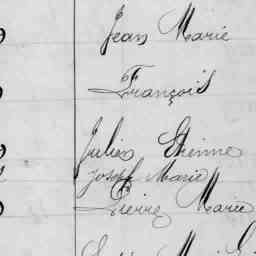 Jean Marie
François
Julien Etienne
Joseph Marie
Pierre Marie